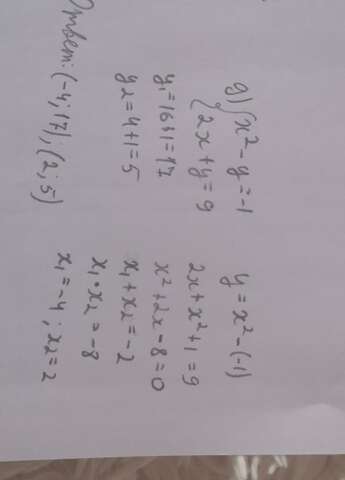 g) { x² - y = -1
2x + y = 9
y = x² - (-1)
2x + x² + 1 = 9
x² + 2x - 8 = 0
x₁ + x₂ = -2
x₁ • x₂ = -8
x₁ = -4 ; x₂ = 2
y₁ = 16+1 = 17
y₂ = 4+1 = 5
Ответ: (-4; 17); (2; 5)